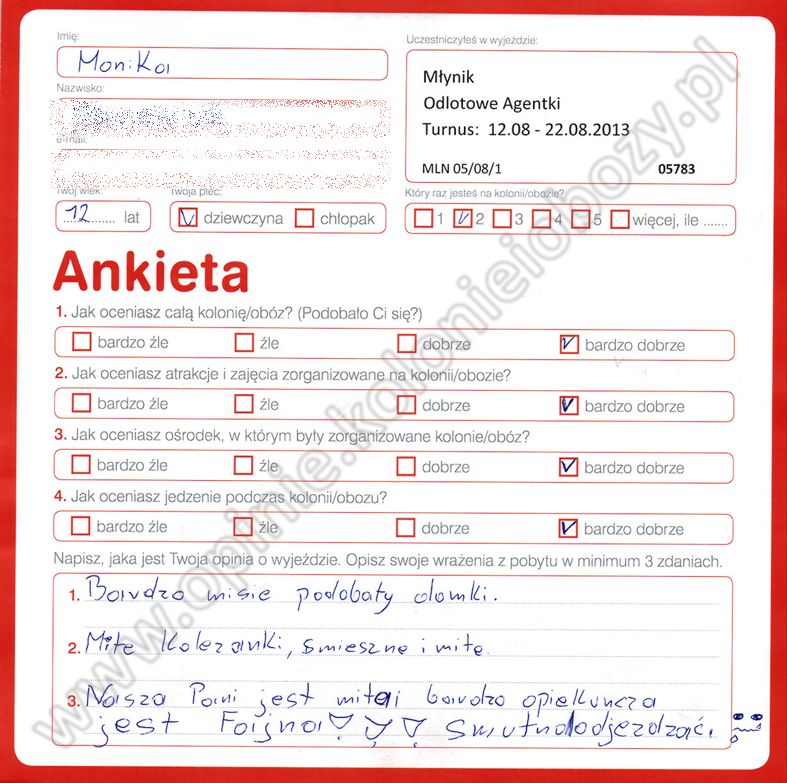 Imię:
Uczestniczyłeś w wyjeździe:
Monika
Młynik
Odlotowe Agentki
Turnus: 12.08 - 22.08.2013
MLN 05/08/1 05783
Nazwisko:
e-mail:
Twój wiek:
Twoja płeć:
Który raz jesteś na kolonii/obozie?
12 lat
dziewczyna chłopak
1 2 3 4 5 więcej, ile .......
Ankieta
1. Jak oceniasz całą kolonię/obóz? (Podobało Ci się?)
bardzo źle źle dobrze bardzo dobrze
2. Jak oceniasz atrakcje i zajęcia zorganizowane na kolonii/obozie?
bardzo źle źle dobrze bardzo dobrze
3. Jak oceniasz ośrodek, w którym były zorganizowane kolonie/obóz?
bardzo źle źle dobrze bardzo dobrze
4. Jak oceniasz jedzenie podczas kolonii/obozu?
bardzo źle źle dobrze bardzo dobrze
Napisz, jaka jest Twoja opinia o wyjeździe. Opisz swoje wrażenia z pobytu w minimum 3 zdaniach.
1. Bardzo misie podobały domki.
2. Miłe Koleżanki, śmieszne i miłe.
3. Nasza Pani jest miła i bardzo opiekuńcza
jest Fajna Smutno odjeżdżać.
www.opinie.kolonieiobozy.pl